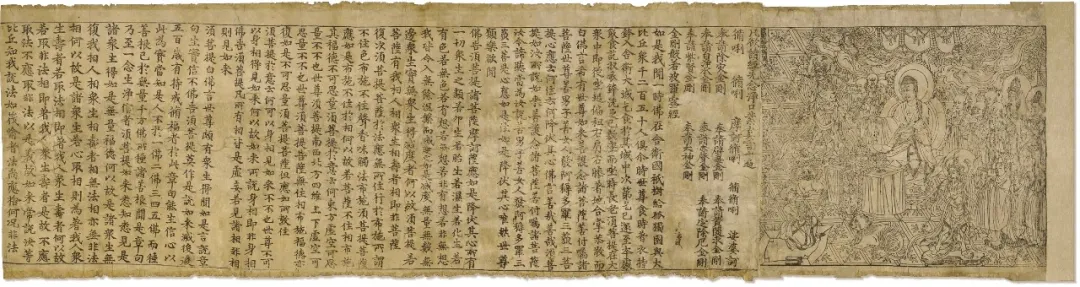 凡欲讀經先念淨口業真言一遍
脩唎 脩唎 摩訶脩唎 脩脩唎 娑婆訶
奉請除災金剛 奉請辟毒金剛 奉請黃隨求金剛
奉請白淨水金剛 奉請赤聲金剛 奉請定除厄金剛
奉請紫賢金剛 奉請大神金剛
金剛般若波羅蜜經
如是我聞一時佛在舍衛國祇樹給孤獨園與大
比丘眾千二百五十人俱尒時世尊食時著衣持
鉢入舍衛大城乞食於其城中次第乞已還至本處
飯食訖收衣鉢洗足已敷座而坐時長老須菩提在大
眾中即從座起偏袒右肩右膝著地合掌恭敬而
白佛言希有世尊如來善護念諸菩薩善付囑諸
菩薩世尊善男子善女人發阿耨多羅三藐三菩
提心應云何住云何降伏其心佛言善哉善哉須菩
提如汝所說如來善護念諸菩薩善付囑諸菩薩
汝今諦聽當為汝說善男子善女人發阿耨多羅三
藐三菩提心應如是住如是降伏其心唯然世尊
願樂欲聞
佛告須菩提諸菩薩摩訶薩應如是降伏其心所有
一切眾生之類若卵生若胎生若濕生若化生若
有色若無色若有想若無想若非有想若非無想
我皆令入無餘涅槃而滅度之如是滅度無量無數無
邊眾生實無眾生得滅度者何以故須菩提若
菩薩有我相人相眾生相壽者相即非菩薩
復次須菩提菩薩於法應無所住行於布施所謂
不住色布施不住聲香味觸法布施須菩提菩薩
應如是布施不住於相何以故若菩薩不住相布施
其福德不可思量須菩提於意云何東方虛空可思
量不不也世尊須菩提南西北方四維上下虛空可
思量不不也世尊須菩提菩薩無住相布施福德亦
復如是不可思量須菩提菩薩但應如所教住
須菩提於意云何可以身相見如來不不也世尊不可
以身相得見如來何以故如來所說身相即非身相
佛告須菩提凡所有相皆是虛妄若見諸相非相
則見如來
須菩提白佛言世尊頗有眾生得聞如是言說章
句生實信不佛告須菩提莫作是說如來滅後後
五百歲有持戒修福者於此章句能生信心以
此為實當知是人不於一佛二佛三四五佛而種
善根已於無量千万佛所種諸善根聞是章句
乃至一念生淨信者須菩提如來悉知悉見是
諸眾生得如是無量福德何以故是諸眾生無
復我相人相眾生相壽者相無法相亦無非法
相何以故是諸眾生若心取相則為著我人眾
生壽者若取法相即著我人眾生壽者何以故
若取非法相即著我人眾生壽者是故不應
取法不應取非法以是義故如來常說汝等
比丘知我說法如筏喻者法尚應捨何況非法